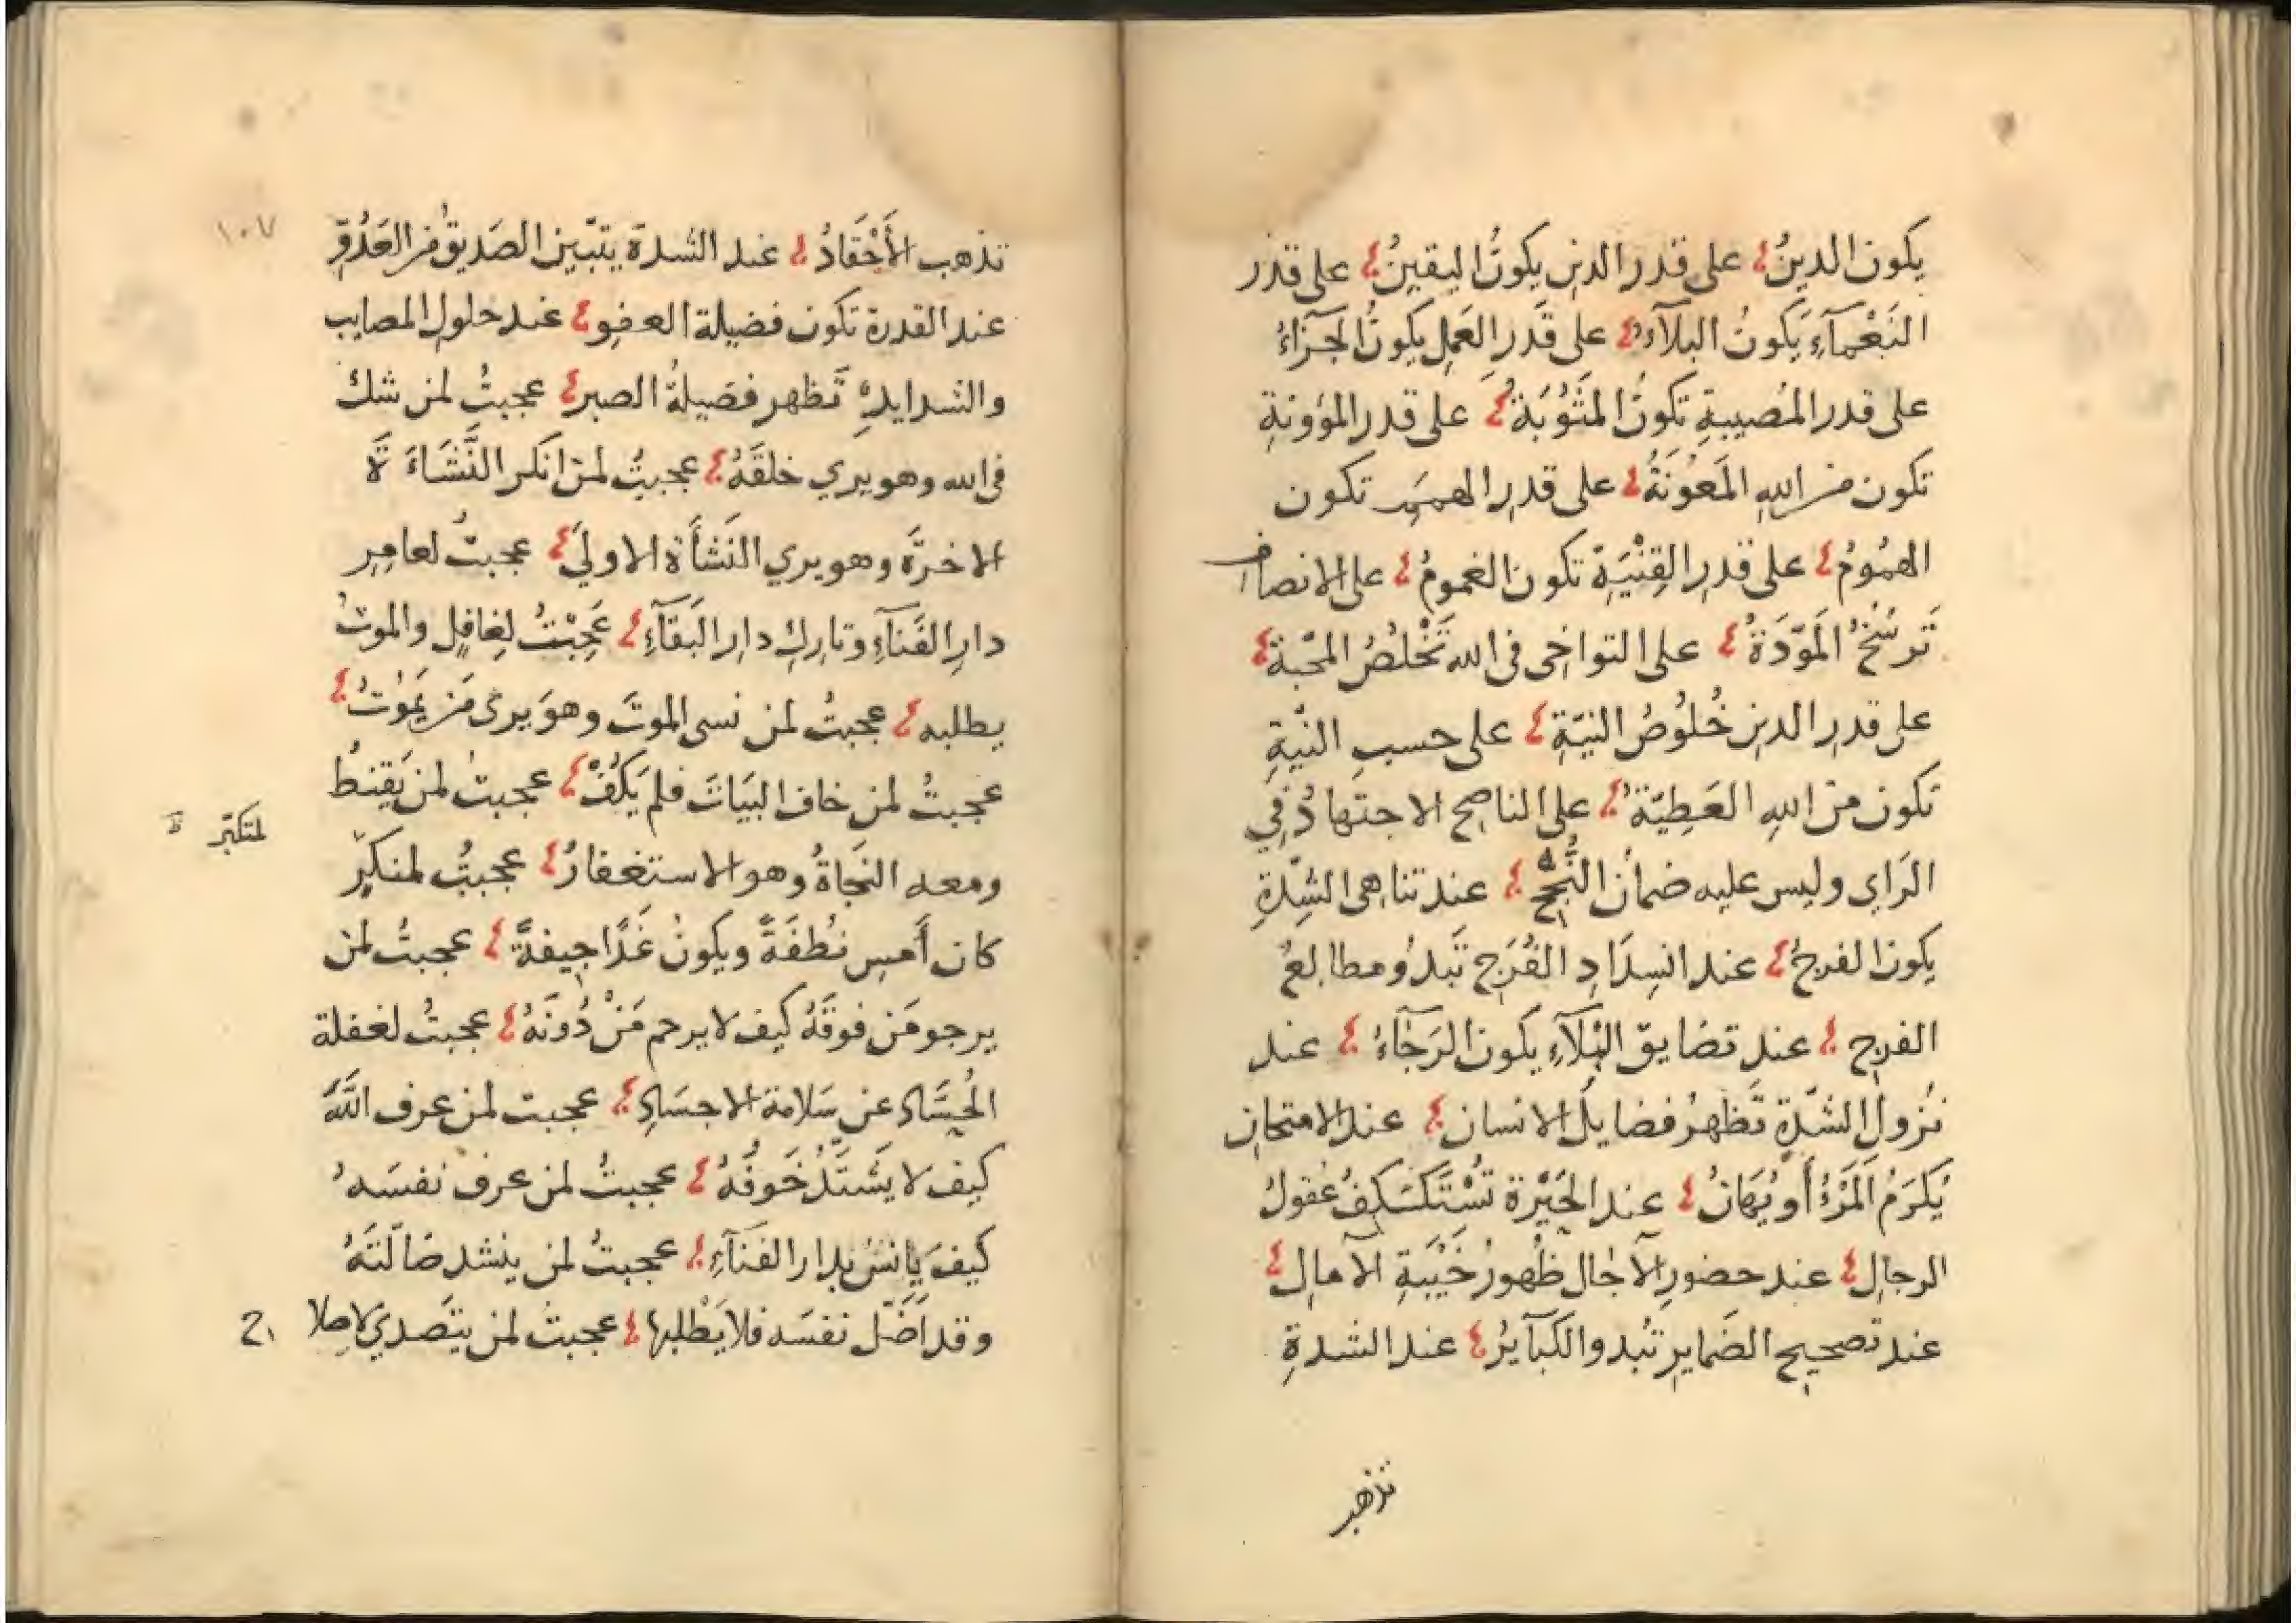 يكون الدينُ على قدر الدين يكونُ اليقينُ على قدر
النَعْمآءِ يَكونُ البلآءُ على قَدَرِ العَمِل يكونُ الجَزآءُ
على قدر المُصيبةِ تكونُ المثُوْبَةُ على قدر المؤونةِ
تكون من اللهِ المَعُونَةُ على قدرِ الهممِ تكون
الهمُومُ على قدرِ القِنْيَةِ تكون الغمومُ على الانصاف
تَرسُخُ المَوَدَةُ على التواخى فى الله تَخْلُصُ المحّبة
على قدرِ الدين خُلُوصُ النيّةِ على حسبِ النيّةِ
تكون منَ اللهِ العَطِيّةُ على الناصح الاجتهادُ فِي
الرَاي وليس عليه ضمانُ النُجْحِ عند تناهى الشِدّةِ
يكون الفرجُ عند انسِدَادِ الفُرَجِ تَبدُو مطالعُ
الفرج عند تضايق البْلَآءِ يكون الرَجآءُ عند
نُزولِ الشدّةِ تَظهرُ فضايلُ الانسان عند الامتحانِ
يَكرَمُ المَرْءُ أَو يُهَانُ عند الحَيْرة تُسْتَكشَفُ عُقولُ
الرجالِ عند حضورِ الآجال ظُهورُ خَيْبَةِ الآمالِ
عند تصحيح الضَمايرِ تَبُدو الكَبآيرُ عند الشدةِ
تذهب
١٠٧
تذهب الأَحْقَادُ عند الشدة يتبّين الصَديقُ من العَدُوِّ
عند القدرة تكون فضيلة العفوِ عند حلولِ المصايب
والشدايدِ تَظهر فضيلةُ الصبر عجبتُ لمن شك
فى الله وهو يري خلقَهُ عجبتُ لمن انكر النَّشَاةَ
الاخرَة وهو يري النَشأَة الاولَي عجبتُ لعامِرِ
دارِ الفَنآءِ وتارك دارِ البَقآءِ عَجِبْتُ لِغافِلٍ والموتُ
يطلبه عجبتُ لمن نسى الموتَ وهوَ يرى مَن يَمُوتُ
عجبتُ لمن خاف البَيَاتَ فلم يَكُفْ عجبتُ لمن يَقنطُ
ومعه النَجَاةُ وهو الاستغفارُ عجبتُ لمنكبّرٍ
لمتكبّر ظ
كان أَمسِ نُطفَةً ويكونُ غَدًا جيفةً عجبتُ لمن
يرجو مَن فوقَهُ كيف لا يرحم مَنْ دُونَهُ عجبتُ لغفلة
الحُسَّادِ عن سَلامة الاجسَادِ عجبت لمن عرف اللَّهَ
كيف لا يَشْتَدُّ خَوفُهُ عجبتُ لمن عرف نفسَهُ
كيفَ يانسُ بدار الفَنآءِ عجبتُ لمن ينشد ضالّتَهُ
وقد اَضَلّ نفسَه فلا يَطْلبها عجبتُ لمن يتَصدي لاصِلا
ح